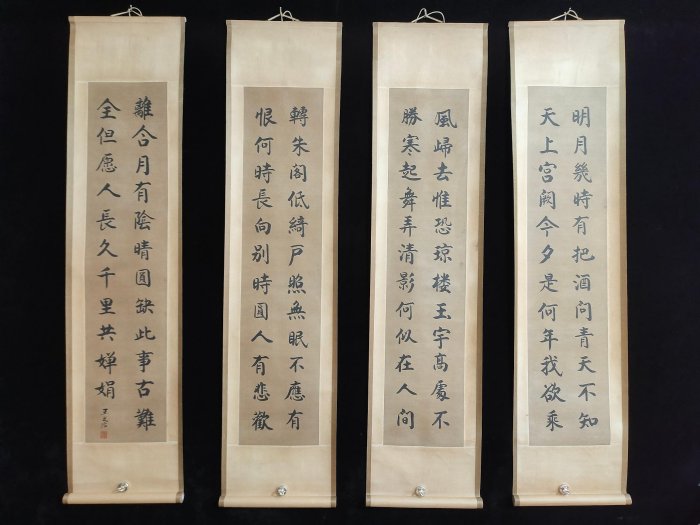 明月幾時有把酒问青天不知
天上宫阙今夕是何年我欲乘
風歸去惟恐琼楼玉宇高處不
勝寒起舞弄清影何似在人间
轉朱阁低綺户照無眠不應有
恨何時長向别時圓人有悲歡
離合月有陰晴圓缺此事古難
全但愿人長久千里共婵娟
王文治